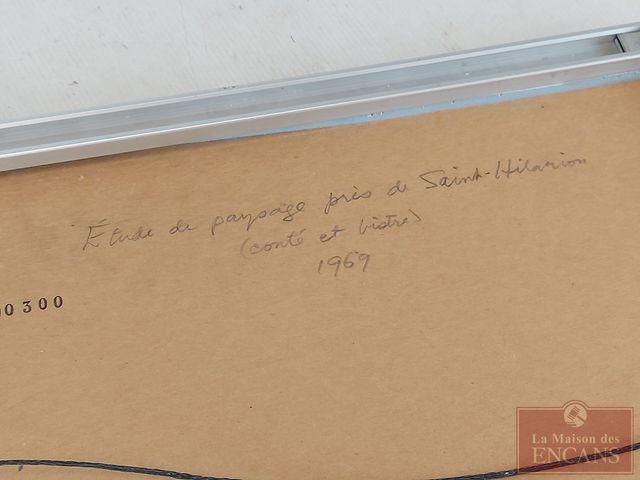 Étude de paysage près de Saint-Hilarion
(conté et bistre)
1969
00300
La Maison des
ENCANS